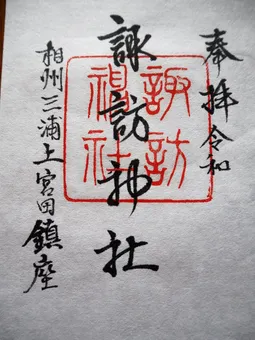 奉拝 令和
諏訪神社
諏訪神社
相州三浦上宮田鎮座